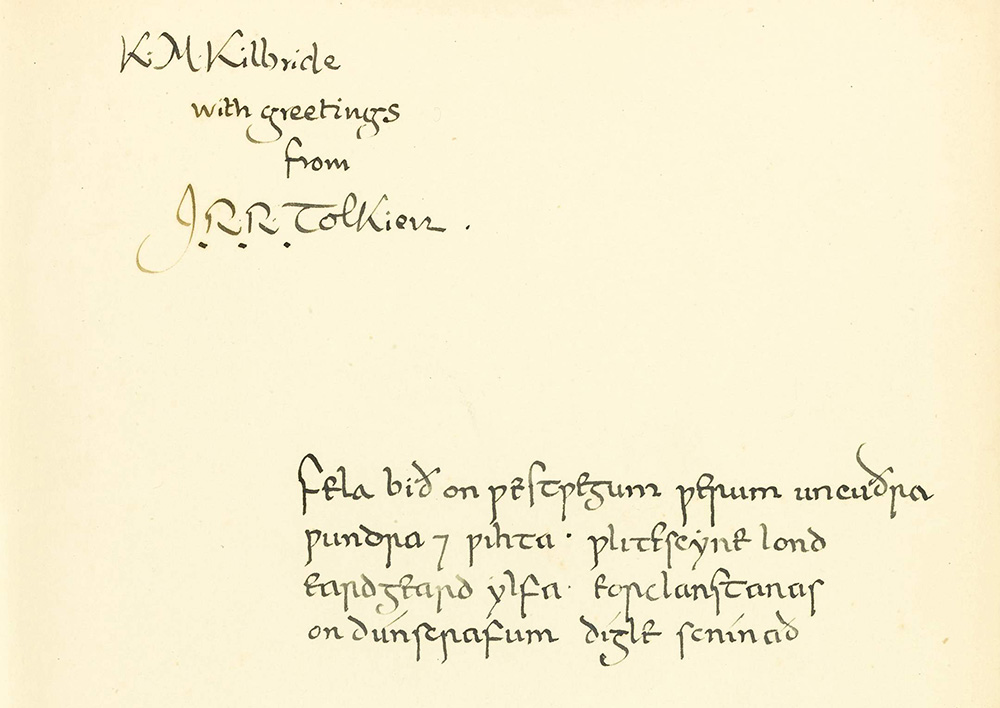 K·M·Kilbride
with greetings
from
J.R.R. Tolkien.
fela bið on ƿestƿegum ƿerum uncuðra
ƿundra ⁊ ƿihta · ƿlitescýne lond
eardgeard ylfa · eorclanstanas
on dúnscrafum dígle scínað